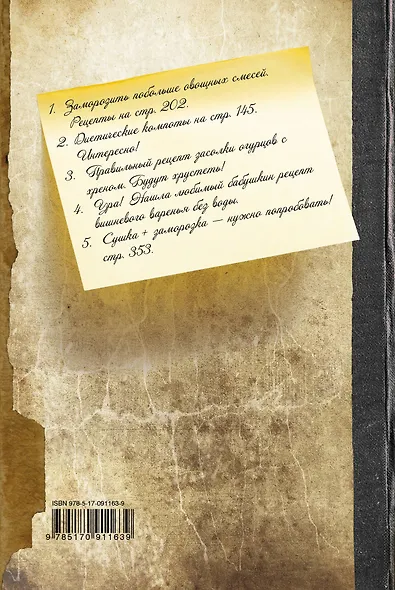 1. Заморозить побольше овощных смесей.
Рецепты на стр. 202.
2. Диетические компоты на стр. 145.
Интересно!
3. Правильный рецепт засолки огурцов с
хреном. Будут хрустеть!
4. Ура! Нашла любимый бабушкин рецепт
вишневого варенья без воды.
5. Сушка + заморозка — нужно попробовать!
стр. 353.
ISBN 978-5-17-091163-9
9 785170 911639